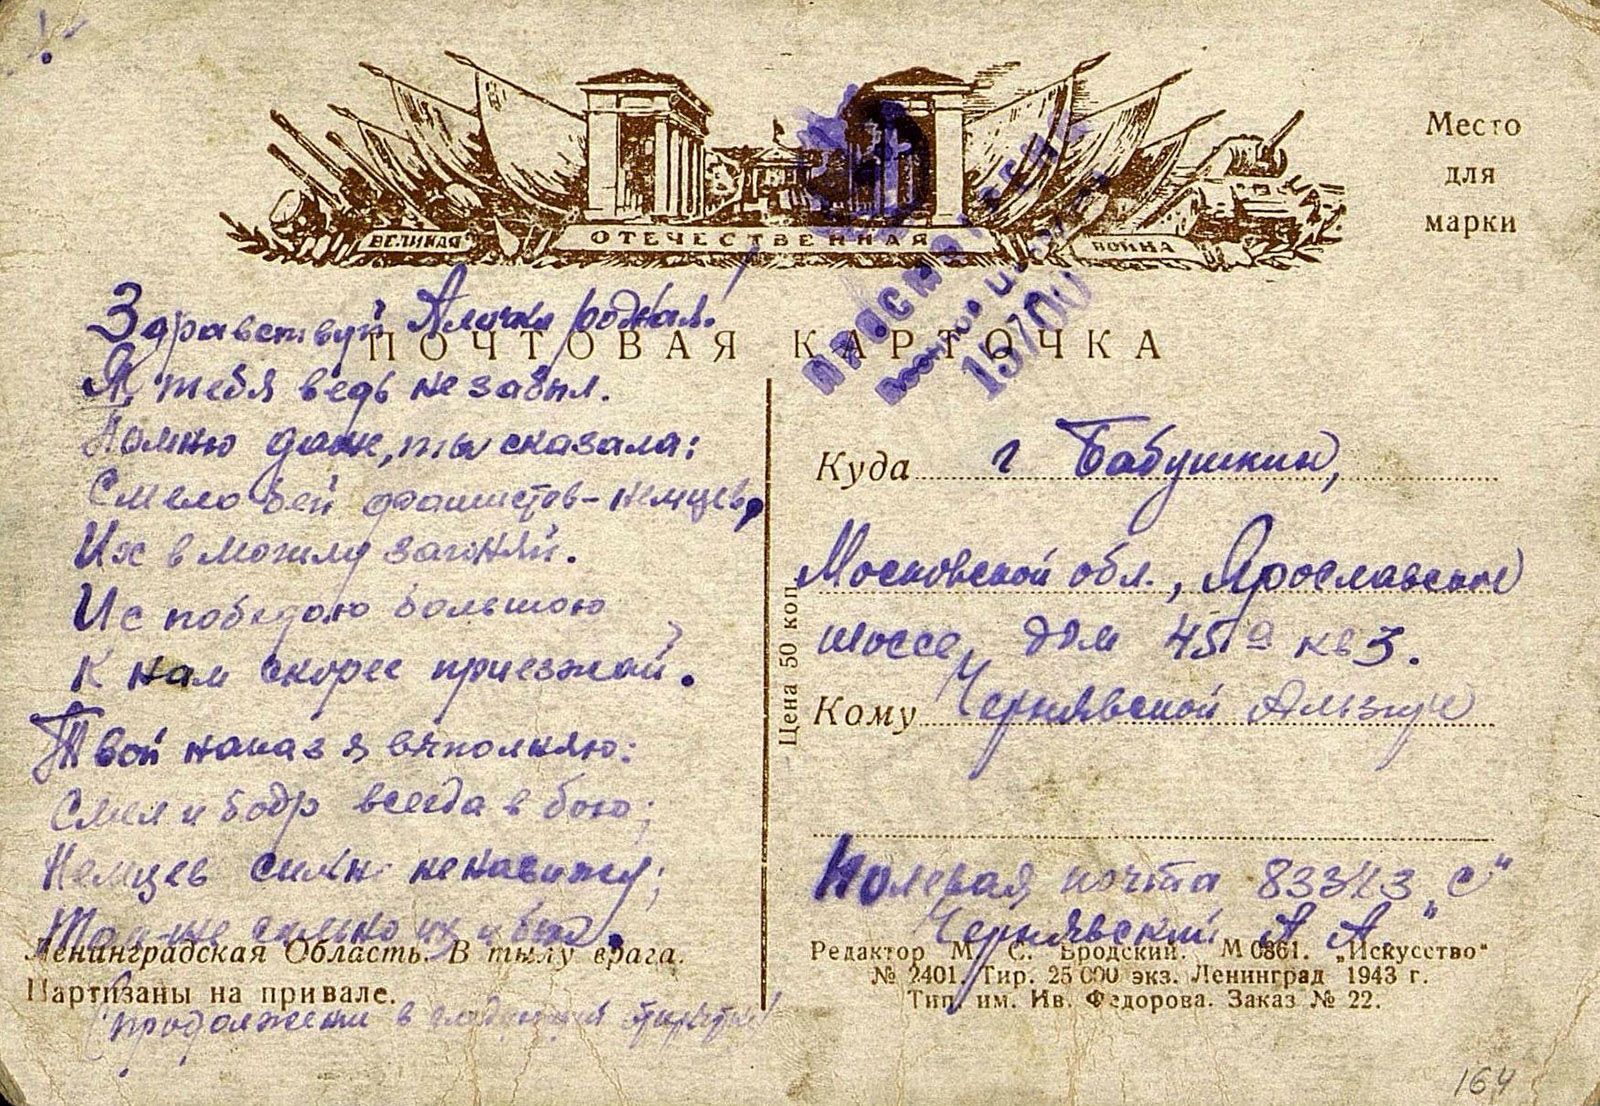 Место
для
марки
ВЕЛИКАЯ ОТЕЧЕСТВЕННАЯ ВОЙНА
ПОЧТОВАЯ КАРТОЧКА
15700
Здравствуй Алочка родная!
Я тебя ведь не забыл.
Помню даже, ты сказала:
Смело бей фашистов-немцев,
Их в могилу загоняй.
И с победою большою
К нам скорее приезжай.
Твой наказ я выполняю:
Смел и бодр всегда в бою;
Немцев сильно ненавижу;
сильно их и бью.
Ленинградская Область. В тылу врага.
Партизаны на привале.
(продолжение в следующей
Цена 50 коп.
Куда г Бабушкин,
Московской обл., Ярославское
шоссе, дом 45а кв 3.
Кому Чернявской
Полевая почта 83343 „С"
Чернявский А А.
Редактор М. С. Бродский. М 0861. „Искусство"
№ 2401. Тир. 25 000 экз. Ленинград 1943 г.
Тип. им. Ив. Федорова. Заказ № 22.
164